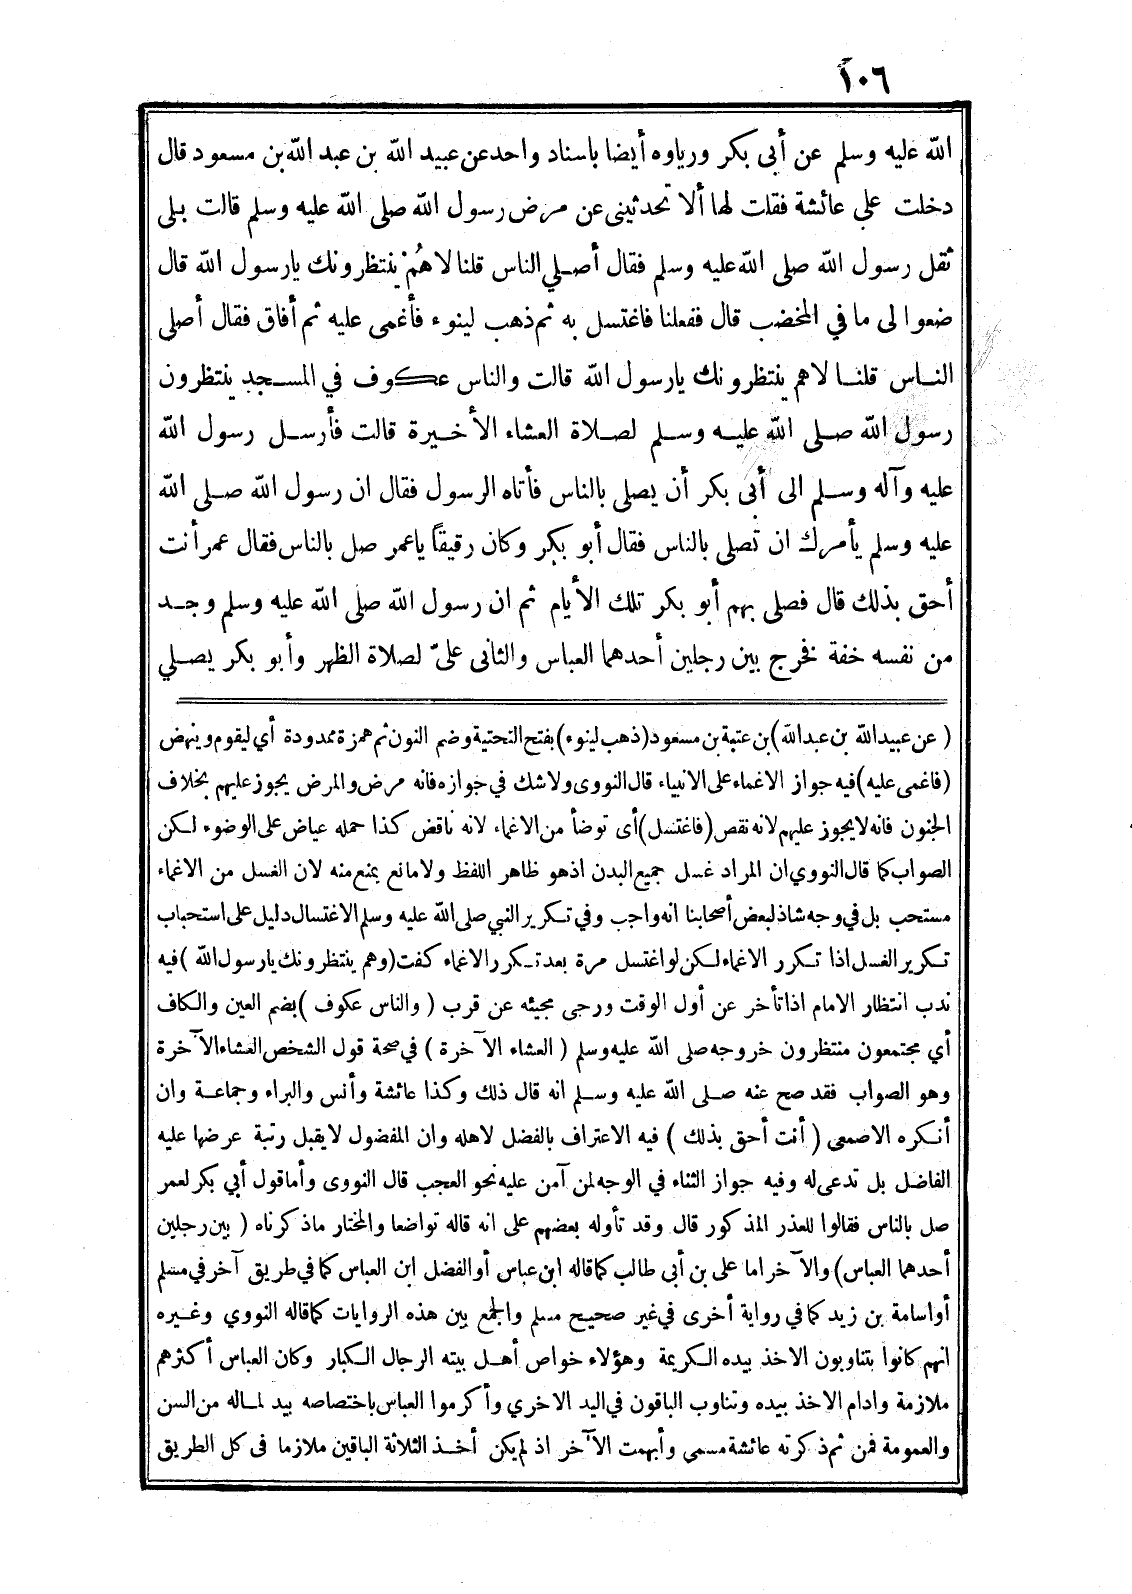 ١٠٦
الله عليه وسلم عن أبى بكر ورياوه أيضا باسناد واحد عن عبيد الله بن عبد الله بن مسعود قال
دخلت على عائشة فقلت لها ألا تحدثينى عن مرض رسول الله صلى الله عليه وسلم قالت بلى
ثقل رسول الله صلى الله عليه وسلم فقال أصلي الناس قلنا لا هُمْ ينتظرونك يارسول الله قال
ضعوا لى ما في المخضب قال ففعلنا فاغتسل به ثم ذهب لينوء فأغمى عليه ثم أفاق فقال أصلى
الناس قلنا لا هم ينتظرونك يارسول الله قالت والناس عكوف في المسجد ينتظرون
رسول الله صلى الله عليه وسلم لصلاة العشاء الأخيرة قالت فأرسل رسول الله
عليه وآله وسلم الى أبى بكر أن يصلى بالناس فأتاه الرسول فقال ان رسول الله صلى الله
عليه وسلم يأمرك ان تصلى بالناس فقال أبو بكر وكان رقيقاً ياعمر صل بالناس فقال عمر أنت
أحق بذلك قال فصلى بهم أبو بكر تلك الأيام ثم ان رسول الله صلى الله عليه وسلم وجد
من نفسه خفة فخرج بين رجلين أحدهما العباس والثانى علىّ لصلاة الظهر وأبو بكر يصلي
( عن عبيد الله بن عبد الله ) بن عتبة بن مسعود (ذهب لينوء) بفتح التحتية وضم النون ثم همزة ممدودة أي ليقوم وينهض
(فاغمى عليه) فيه جواز الاغماء على الانبياء قال النووى ولا شك في جوازه فانه مرض والمرض يجوز عليهم بخلاف
الجنون فانه لا يجوز عليهم لانه نقص (فاغتسل) أى توضأ من الاغماء لانه ناقض كذا حمله عياض على الوضوء لكن
الصواب كما قال النووي ان المراد غسل جميع البدن اذ هو ظاهر اللفظ ولا مانع يمنع منه لان الغسل من الاغماء
مستحب بل في وجه شاذ لبعض أصحابنا انه واجب وفي تكرير النبي صلى الله عليه وسلم الاغتسال دليل على استحباب
تكرير الغسل اذا تكرر الاغماء لكن لو اغتسل مرة بعد تكرر الاغماء كفت (وهم ينتظرونك يارسول الله ) فيه
ندب انتظار الامام اذا تأخر عن أول الوقت ورجى مجيئه عن قرب ( والناس عكوف ) بضم العين والكاف
أي مجتمعون منتظرون خروجه صلى الله عليه وسلم ( العشاء الآخرة ) في صحة قول الشخص العشاء الآخرة
وهو الصواب فقد صح عنه صلى الله عليه وسلم انه قال ذلك وكذا عائشة وأنس والبراء وجماعة وان
أنكره الاصمعى ( أنت أحق بذلك ) فيه الاعتراف بالفضل لاهله وان المفضول لا يقبل رتبة عرضها عليه
الفاضل بل تدعى له وفيه جواز الثناء في الوجه لمن آمن عليه نحو العجب قال النووى وأما قول أبي بكر لعمر
صل بالناس فقالوا للعذر المذكور قال وقد تأوله بعضهم على انه قاله تواضعا والمختار ما ذكرناه ( بين رجلين
أحدهما العباس) والآخر اما على بن أبى طالب كما قاله ابن عباس أو الفضل ابن العباس كما في طريق آخر في مسلم
أو اسامة بن زيد كما في رواية أخرى في غير صحيح مسلم والجمع بين هذه الروايات كما قاله النووي وغيره
انهم كانوا يتناوبون الاخذ بيده الكريمة وهؤلاء خواص أهل بيته الرجال الكبار وكان العباس أكثرهم
ملازمة وادام الاخذ بيده وتناوب الباقون في اليد الاخري وأكرموا العباس باختصاصه بيد لماله من السن
والعمومة فمن ثم ذكرته عائشة مسمى وأبهمت الآخر اذ لم يكن أخذ الثلاثة الباقين ملازما فى كل الطريق